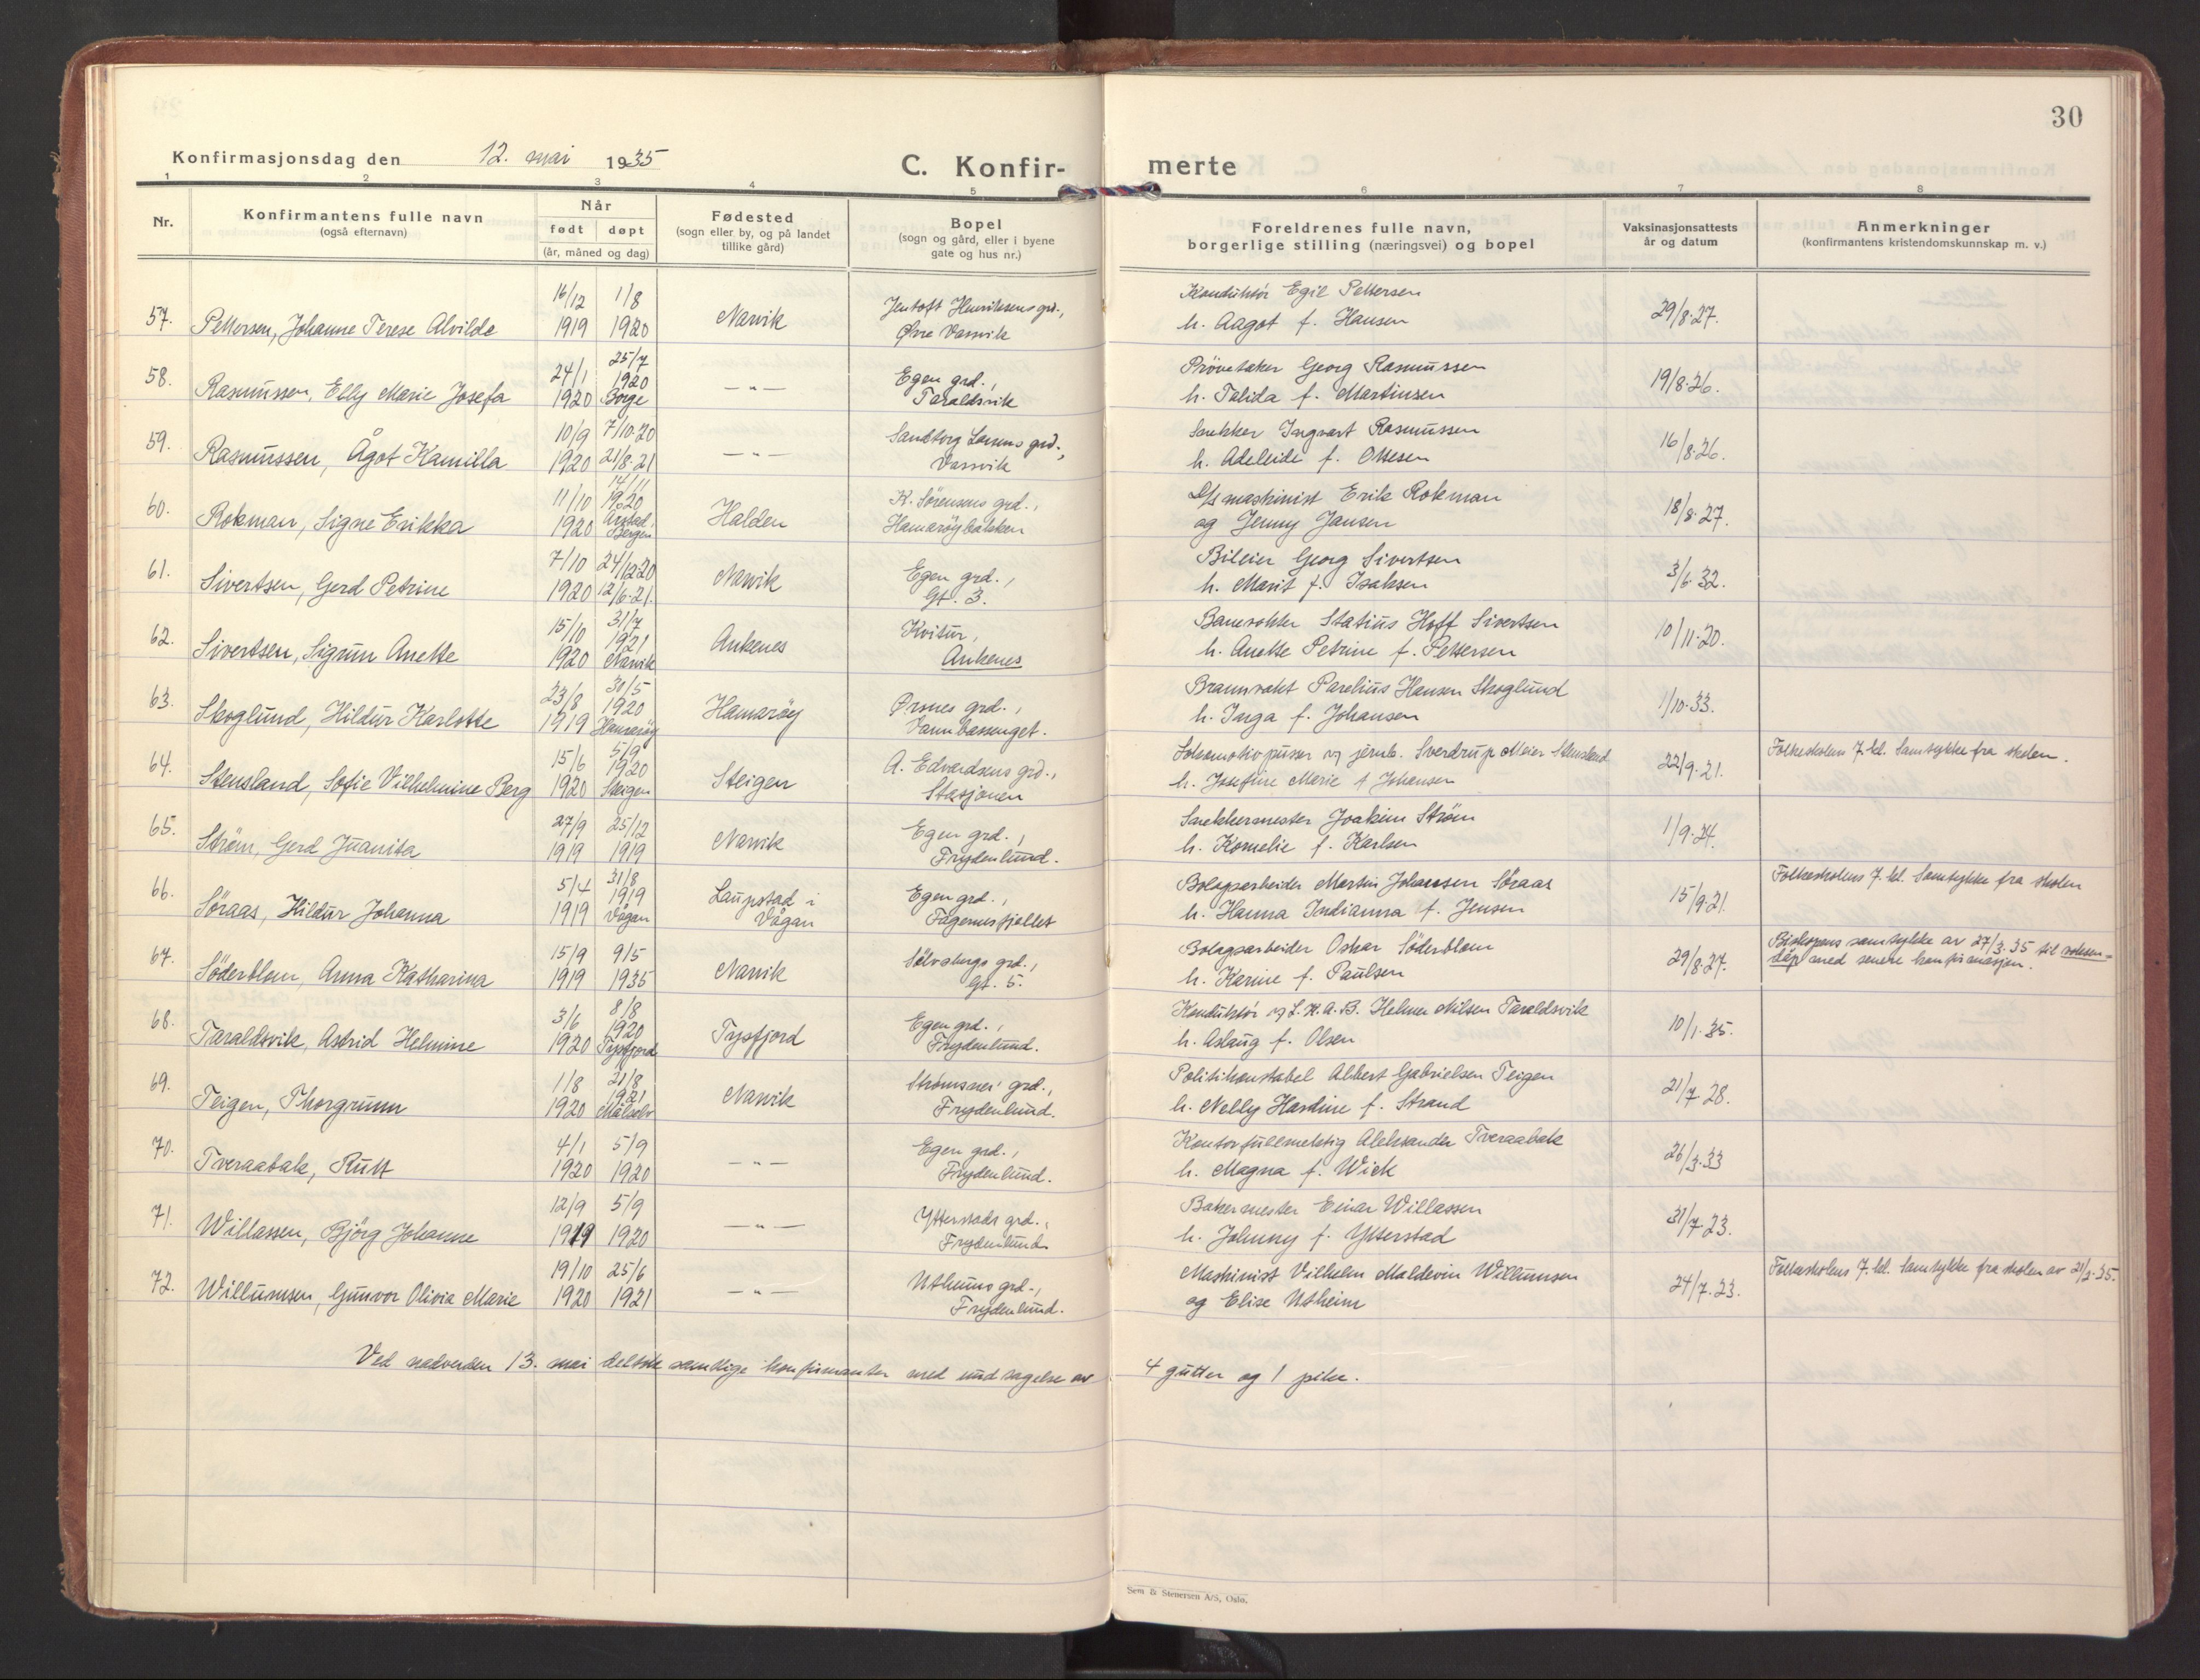 30
Konfirmasjonsdag den 12. mai 1935
C. Konfirmerte
1 2 3 4 5 6 7 8
Nr.
Konfirmantens fulle navn
(også efternavn)
Når
født døpt
(år, måned og dag)
Fødested
(sogn eller by, og på landet
tillike gård)
Bopel
(sogn og gård, eller i byene
gate og hus nr.)
Foreldrenes fulle navn,
borgerlige stilling (næringsvei) og bopel
Vaksinasjonsattests
år og datum
Anmerkninger
(konfirmantens kristendomskunnskap m. v.)
16/12 1/8 Jentoft Henriksens grd., Konduktör Egil Pettersen
57. Pettersen, Johanne Terese Alvilde 1919 1920 Narvik Øvre Vassvik h. Aagot f. Hansen 29/8.27.
58. 24/1 25/7 Egen grd., Prövetaker Georg Rasmussen
Rasmussen, Elly Marie Josefa 1920 1920 Borge — " — Taraldsvik h. Talida f. Martinsen 19/8.26.
59. 10/9 7/10.20 Sandborg Larsens grd., Snekker Ingvart Rasmussen
Rasmussen, Ågot Kamilla 1920 21/8.21 — " — Vassvik h. Adeleide f. Ottesen 16/8.26.
60. 11/10 14/11 1920 K. Sörensens grd., D/s maskinist Erik Rokman
Rokman, Signe Erikka 1920 Årstad, Bergen Halden Hamaröybakken og Jenny Jansen 18/8.27.
61. 7/10 24/12 20 Egen grd., Bileier Georg Sivertsen
Sivertsen, Gerd Petrine 1920 12/6.21. Narvik Gt. 3. h. Marit f. Isaksen 3/6.32.
62. 15/10 31/7 1921 Kvitur, Banevokter Statius Hoff Sivertsen
Sivertsen, Sigrun Anette 1920 Narvik Ankenes Ankenes h. Anette Petrine f. Pettersen 10/11.20.
63. 23/8 30/5 1920 Ørsnes grd., Brannvakt Parelius Hansen Skoglund
Skoglund, Hildur Karlotte 1919 Hamaröy Hamaröy Vannbassenget. h. Inga f. Johansen 1/10.33.
64. 15/6 5/9 1920 A. Edvardsens grd., Lokomotivpusser v/ jernb. Sverdrup Meier Stensland Folkeskolens 7. kl. Samtykke fra skolen.
Stensland, Sofie Vilhelmine Berg 1920 Steigen Steigen Stasjonen h. Josefine Marie f Johansen 22/9.21.
65. 27/9 25/12 Egen grd., Snekkermester Joakim Ström
Ström, Gerd Juanita 1919 1919 Narvik Frydenlund. h. Kornelie f. Karlsen 1/9.24.
66. 5/4 31/8 1919 Laupstad i Egen grd., Bolagsarbeider Martin Johansen Söraas Folkeskolens 7. kl. Samtykke fra skolen
Söraas, Hildur Johanna 1919 Vågan Vågan Fagernesfjellet h. Hanna Indianna f. Jensen 15/9.21.
67. 15/9 9/5 Sölvsbergs grd., Bolagsarbeider Oskar Söderblom Biskopens samtykke av 27/3.35 til voksen-
Söderblom, Anna Katharina 1919 1935 Narvik Gt. 5. h. Karine f. Paulsen 29/8.27. dåp med senere konfirmasjon.
68. 3/6 8/8 1920 Egen grd., Konduktör v/ L.K.A.B. Helmer Nilsen Taraldsvik
Taraldsvik, Astrid Helmine 1920 Tysfjord Tysfjord Frydenlund. h. Aslaug f. Olsen 10/1.35.
69. 1/8 21/8 1921 Strömsnes' grd., Politikonstabel Albert Gabrielsen Teigen
Teigen, Thorgrunn 1920 Målselv Narvik Frydenlund. h. Nelly Hardine f. Strand 21/7.28.
70. 4/1 5/9 Egen grd., Kontorfullmektig Aleksander Tveraabak
Tveraabak, Rutt 1920 1920 — " — Frydenlund. h. Magna f. Wick 26/3.33
71. 12/9 5/9 Ytterstads grd., Bakermester Einar Willassen
Willassen, Bjørg Johanne 1919 1920 — " — Frydenlund h. Johnny f. Ytterstad 31/7.23.
72. 19/10 25/6 Utheims grd., Maskinist Vilhelm Maldevin Willumsen Folkeskolens 7. kl. Samtykke fra skolen av 21/2.35.
Willumsen, Gunvor Olivia Marie 1920 1921 — " — Frydenlund. og Elise Utheim 24/7.23.
Ved nadverden 13. mai deltok samtlige konfirmanter med undtagelse av 4 gutter og 1 pike.
Sem & Stenersen A/S, Oslo.